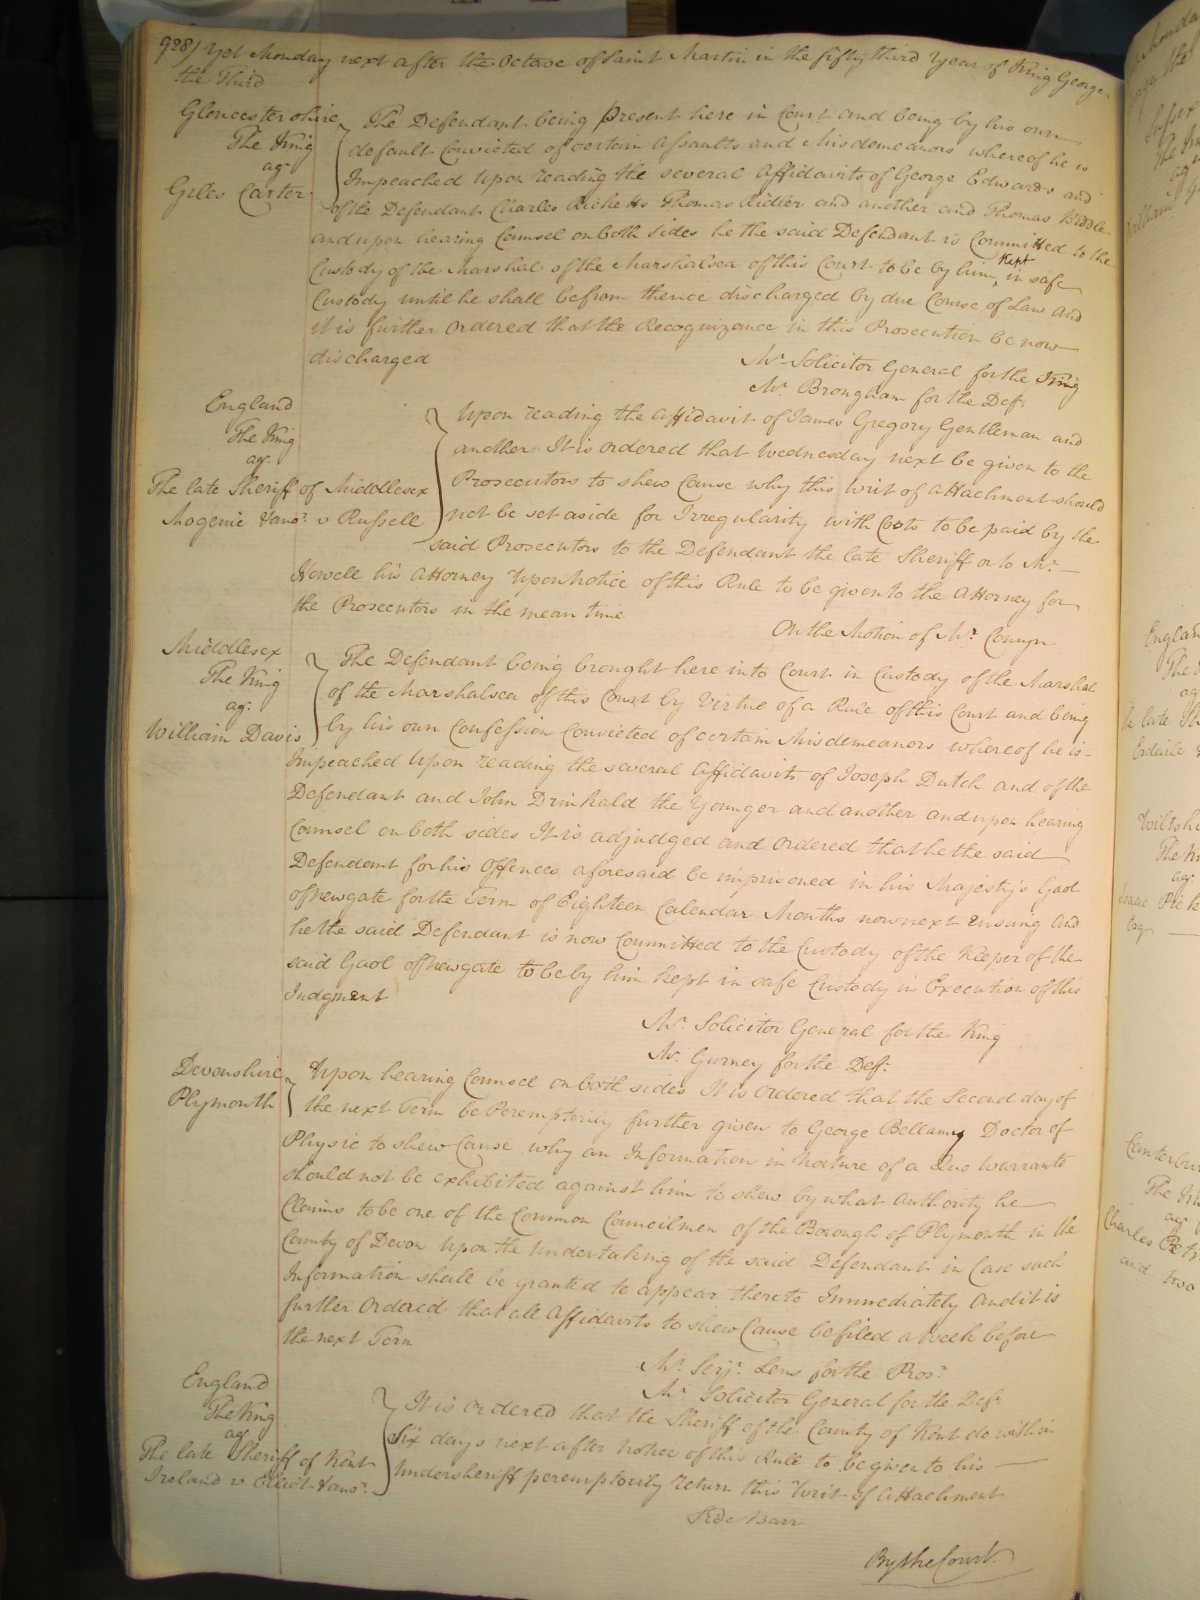 928/ Yet Monday next after the Octave of Saint Martin in the fifty third Year of King George
the Third
Gloucestershire
The King
agt
Giles Carter
The Defendant being present here in Court and being by his own
default Convicted of certain Assaults and Misdemeanors whereof he is
Impeached Upon reading the several Affidavits of George Edwards and
of the Defendant Charles Ricketts Thomas Ridler and another and Thomas Biddle
and upon hearing Counsel on both sides he the said Defendant is Committed to the
Custody of the Marshal of the Marshalsea of this Court to be by him kept in safe
Custody until he shall be from thence discharged by due Course of Law And
it is further ordered that the Recognizance in this Prosecution be now
discharged
Mr. Solicitor General for the King
Mr. Brougham for the Deft
England
The King
agt
The late Sheriff of Middlesex
Mogenie & anor v Russell
Upon reading the Affidavit of James Gregory Gentleman and
another It is ordered that Wednesday next be given to the
Prosecutors to shew Cause why this writ of attachment should
not be set aside for Irregularity with Costs to be paid by the
said Prosecutors to the Defendant the late Sheriff or to Mr.
Howell his Attorney Upon Notice of this Rule to be given to the Attorney for
the Prosecutors in the mean time
On the Motion of Mr. Comyn
Middlesex
The King
agt
William Davis
The Defendant being brought here into Court in Custody of the Marshal
of the Marshalsea of this Court by Virtue of a Rule of this Court and being
by his own Confession Convicted of certain Misdemeanors whereof he is
Impeached Upon reading the several Affidavits of Joseph Dutch and of the
Defendant and John Drinkald the Younger and another and upon hearing
Counsel on both sides It is adjudged and ordered that he the said
Defendant for his Offences aforesaid be imprisoned in his Majesty's Gaol
of Newgate for the Term of Eighteen Calendar Months now next ensuing And
he the said Defendant is now Committed to the Custody of the Keeper of the
said Gaol of Newgate to be by him kept in safe Custody in Execution of this
Judgment
Mr. Solicitor General for the King
Mr. Gurney for the Deft.
Devonshire
Plymouth
Upon hearing Counsel on both sides It is Ordered that the Second day of
the next Term be Peremptorily further given to George Bellamy Doctor of
Physic to shew Cause why an Information in Nature of a Quo Warranto
should not be exhibited against him to shew by what Authority he
Claims to be one of the Common Councilmen of the Borough of Plymouth in the
County of Devon Upon the Undertaking of the said Defendant in Case such
Information shall be granted to appear thereto Immediately And it is
further Ordered that all Affidavits to shew Cause be filed a Week before
the next Term
Mr. Serjt. Lens for the Prosr.
Mr. Solicitor General for the Deft.
England
The King
agt
The late Sheriff of Kent
Ireland v Elliot & anor.
It is ordered that the Sheriff of the County of Kent do within
Six days next after notice of this Rule to be given to his
Undersheriff peremptorily return this Writ of Attachment
Side Barr
By the Court